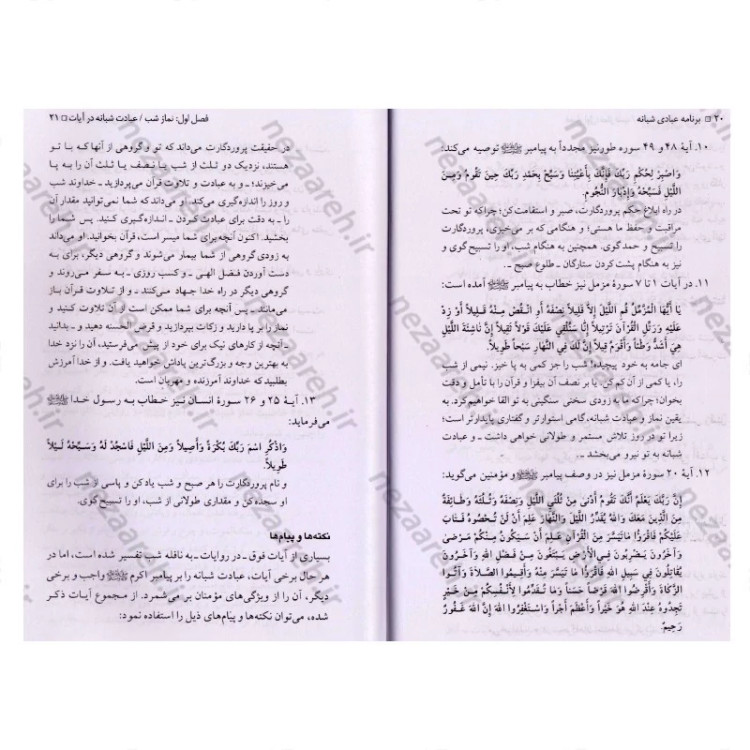 ۲۰ □ برنامه عبادی شبانه
۱۰. آیهٔ ۴۸ و ۴۹ سوره طور نیز مجدداً به پیامبر ﷺ توصیه می‌کند:
وَاصْبِرْ لِحُكْمِ رَبِّكَ فَإِنَّكَ بِأَعْيُنِنَا وَسَبِّحْ بِحَمْدِ رَبِّكَ حِينَ تَقُومُ وَمِنَ
اللَّيْلِ فَسَبِّحْهُ وَإِدْبَارَ النُّجُومِ.
در راه ابلاغ حکم پروردگارت، صبر و استقامت کن؛ چراکه تو تحت
مراقبت و حفظ ما هستی؛ و هنگامی که بر می‌خیزی، پروردگارت
را تسبیح و حمد گوی. همچنین به هنگام شب، او را تسبیح گوی و
نیز به هنگام پشت کردن ستارگان ـ طلوع صبح ـ.
۱۱. در آیات ۱ تا ۷ سورهٔ مزمل نیز خطاب به پیامبر ﷺ آمده است:
يَا أَيُّهَا الْمُزَّمِّلُ قُمِ اللَّيْلَ إِلاَّ قَلِيلاً نِصْفَهُ أَوِ انْقُصْ مِنْهُ قَلِيلاً أَوْ زِدْ
عَلَيْهِ وَرَتِّلِ الْقُرْآنَ تَرْتِيلاً إِنَّا سَنُلْقِي عَلَيْكَ قَوْلاً ثَقِيلاً إِنَّ نَاشِئَةَ اللَّيْلِ
هِيَ أَشَدُّ وَطْئاً وَأَقْوَمُ قِيلاً إِنَّ لَكَ فِي النَّهَارِ سَبْحاً طَوِيلاً.
ای جامه به خود پیچیده! شب را جز کمی به پا خیز. نیمی از شب
را، یا کمی از آن کم کن. یا بر نصف آن بیفزا و قرآن را با تأمل و دقت
بخوان؛ چراکه ما به زودی سخنی سنگینی به تو القا خواهیم کرد. به
یقین نماز و عبادت شبانه، گامی استوارتر و گفتاری پایدارتر است؛
زیرا تو در روز تلاش مستمر و طولانی خواهی داشت ـ و عبادت
شبانه به تو نیرو می‌بخشد ـ.
۱۲. آیهٔ ۲۰ سورهٔ مزمل نیز در وصف پیامبر ﷺ و مؤمنین می‌گوید:
إِنَّ رَبَّكَ يَعْلَمُ أَنَّكَ تَقُومُ أَدْنَىٰ مِنْ ثُلُثَيِ اللَّيْلِ وَنِصْفَهُ وَثُلُثَهُ وَطَائِفَةٌ
مِنَ الَّذِينَ مَعَكَ وَاللهُ يُقَدِّرُ اللَّيْلَ وَالنَّهَارَ عَلِمَ أَنْ لَنْ تُحْصُوهُ فَتَابَ
عَلَيْكُمْ فَاقْرَؤُا مَاتَيَسَّرَ مِنَ الْقُرْآنِ عَلِمَ أَنْ سَيَكُونُ مِنْكُمْ مَرْضَىٰ
وَآخَرُونَ يَضْرِبُونَ فِي الْأَرْضِ يَبْتَغُونَ مِنْ فَضْلِ اللهِ وَآخَرُونَ
يُقَاتِلُونَ فِي سَبِيلِ اللهِ فَاقْرَؤُا مَا تَيَسَّرَ مِنْهُ وَأَقِيمُوا الصَّلَاةَ وَآتُوا
الزَّكَاةَ وَأَقْرِضُوا اللهَ قَرْضاً حَسَناً وَمَا تُقَدِّمُوا لِأَنْفُسِكُمْ مِنْ خَيْرٍ
تَجِدُوهُ عِنْدَ اللهِ هُوَ خَيْراً وَأَعْظَمَ أَجْراً وَاسْتَغْفِرُوا اللهَ إِنَّ اللهَ غَفُورٌ
رَحِيمٌ.
فصل اول: نماز شب / عبادت شبانه در آیات □ ۲۱
در حقیقت پروردگارت می‌داند که تو و گروهی از آنها که با تو
هستند، نزدیک دو ثلث از شب یا نصف یا ثلث آن را به پا
می‌خیزند؛ ـ و به عبادت و تلاوت قرآن می‌پردازید ـ خداوند شب
و روز را اندازه‌گیری می‌کند. او می‌داند که شما نمی‌توانید مقدار آن
را ـ به دقت برای عبادت کردن ـ اندازه‌گیری کنید. پس شما را
بخشید. اکنون آنچه برای شما میسر است، قرآن بخوانید. او می‌داند
به زودی گروهی از شما بیمار می‌شوند و گروهی دیگر، برای به
دست آوردن فضل الهی ـ و کسب روزی ـ به سفر می‌روند و
گروهی دیگر در راه خدا جهاد می‌کنند ـ و از تلاوت قرآن باز
می‌مانند ـ پس آنچه برای شما ممکن است از آن تلاوت کنید و
نماز را بر پا دارید و زکات بپردازید و قرض الحسنه دهید و ـ بدانید
ـ آنچه از کارهای نیک برای خود از پیش می‌فرستید، آن را نزد خدا
به بهترین وجه و بزرگ‌ترین پاداش خواهید یافت. و از خدا آمرزش
بطلبید که خداوند آمرزنده و مهربان است.
۱۳. آیهٔ ۲۵ و ۲۶ سورهٔ انسان نیز خطاب به رسول خدا ﷺ
می‌فرماید:
وَاذْكُرِ اسْمَ رَبِّكَ بُكْرَةً وَأَصِيلاً وَمِنَ اللَّيْلِ فَاسْجُدْ لَهُ وَسَبِّحْهُ لَيْلاً
طَوِيلاً.
و نام پروردگارت را هر صبح و شب یاد کن و پاسی از شب را برای
او سجده کن و مقداری طولانی از شب، او را تسبیح گوی.
نکته‌ها و پیام‌ها
بسیاری از آیات فوق ـ در روایات ـ به نافله شب تفسیر شده است، اما در
هر حال برخی آیات، عبادت شبانه را بر پیامبر اکرم ﷺ واجب و برخی
دیگر، آن را از ویژگی‌های مؤمنان بر می‌شمرد. از مجموع آیات ذکر
شده، می‌توان نکته‌ها و پیام‌های ذیل را استفاده نمود:
nezaareh.ir